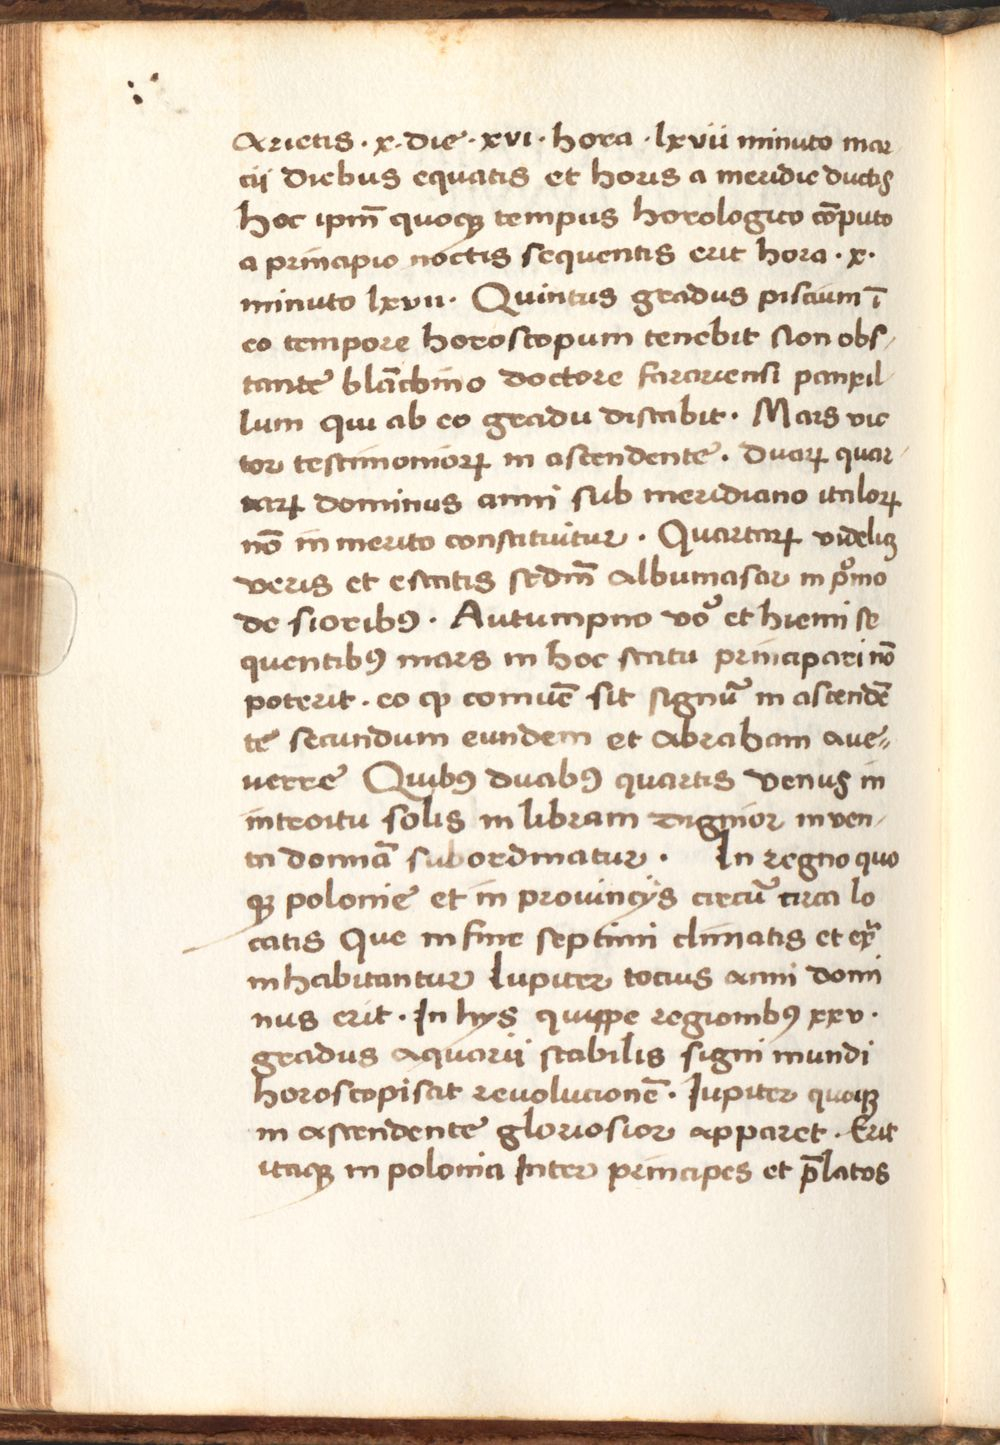 Arietis · x · die · xvi · hora · lxvii minuto mar
cij diebus equatis et horis a meridie ductis
hoc ipm̄ quoqꝫ tempus horologico cōputo
a principio noctis sequentis erit hora · x ·
minuto lxvii · Quintus gradus piscium ī
eo tempore horoscopum tenebit Non obs-
tante blāchino doctore farariensi panxil-
lum qui ab eo gradu distabit · Mars vic
tor testimonioꝝ in ascendente · Duaꝝ quar-
taꝝ dominus anni sub meridiano italoꝝ
nō inmerito constituitur · Quartaꝝ videliꝫ
veris et estatis scd̄m Albumasar in pͦmo
de floribꝰ · Autumpno vͦo et hiemi se
quentibꝰ mars in hoc statu principari nō
poterit · eo ꝙ comuē sit signū in ascendē
te secundum eundem et Abraham ave-
nerre Quibꝰ duabꝰ quartis venus in
introitu solis in libram dignior inven-
ta domīa subordinatur · In regno quo
qꝫ polonie et in provincijs circū circa lo
catis Que in fine septimi climatis et ext͛
inhabitantur Iupiter tocius anni domi
nus erit · In hijs quippe regionibꝰ xxv ·
gradus aquarii stabilis signi mundi
horoscopiscat revolucionē · Iupiter quoqꝫ
in ascendente gloriosior apparet · Erit
itaqꝫ in polonia Inter principes et p̄latos